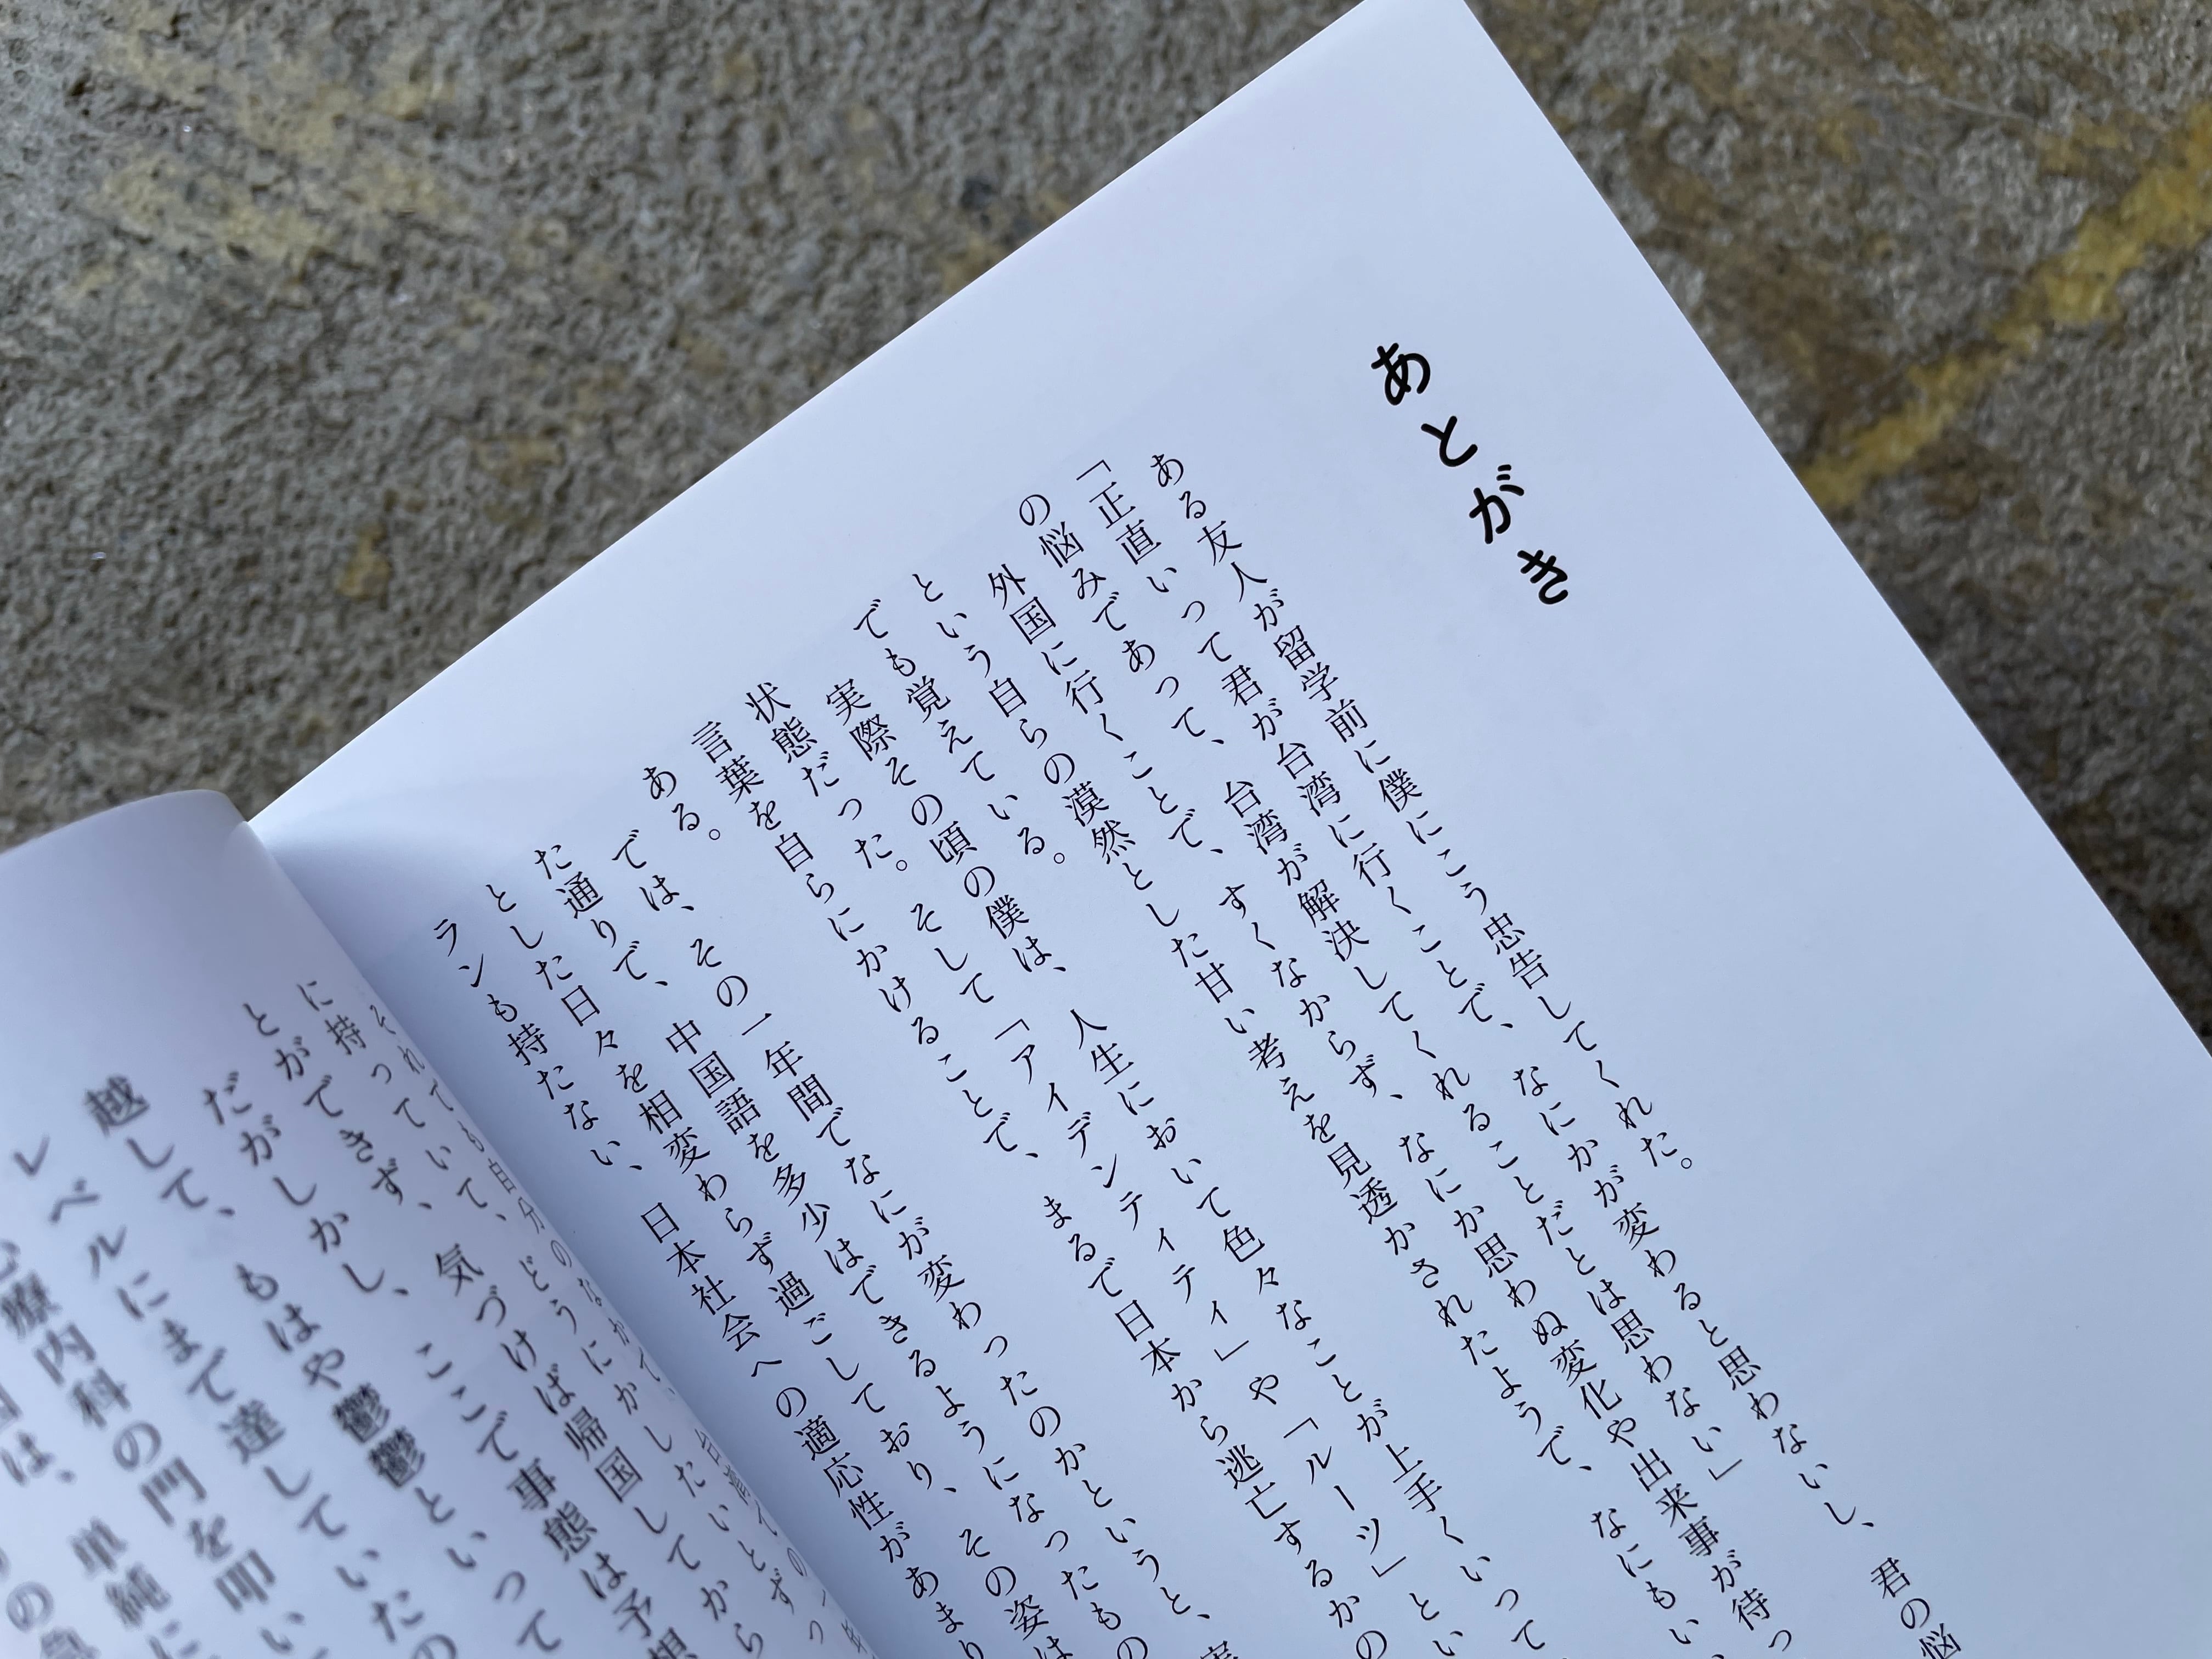 あとがき
ある友人が留学前に僕にこう忠告してくれた。
「正直いって君が台湾に行くことで、なにかが変わると思わないし、君の悩
の悩みであって、台湾が解決してくれることだとは思わない」
外国に行くことで、すくなからず、なにか思わぬ変化や出来事が待っ
という自らの漠然とした甘い考えを見透かされたようで、なにもい
でも覚えている。
実際その頃の僕は、人生において色々なことが上手くいって
状態だった。そして「アイデンティティ」や「ルーツ」とい
言葉を自らにかけることで、まるで日本から逃亡するかの
ある。
では、その一年間でなにが変わったのかというと、実
た通りで、中国語を多少はできるようになったもの
とした日々を相変わらず過ごしており、その姿は
ランも持たない、日本社会への適応性があまり
それでも自分のなかで、台湾での一年
に持っていて、どうにかしたいとずっ
とができず、気づけば帰国してから
だがしかし、ここで事態は予想
越して、もはや鬱鬱といって
レベルにまで達していたの
心療内科の門を叩い
は、単純に
の